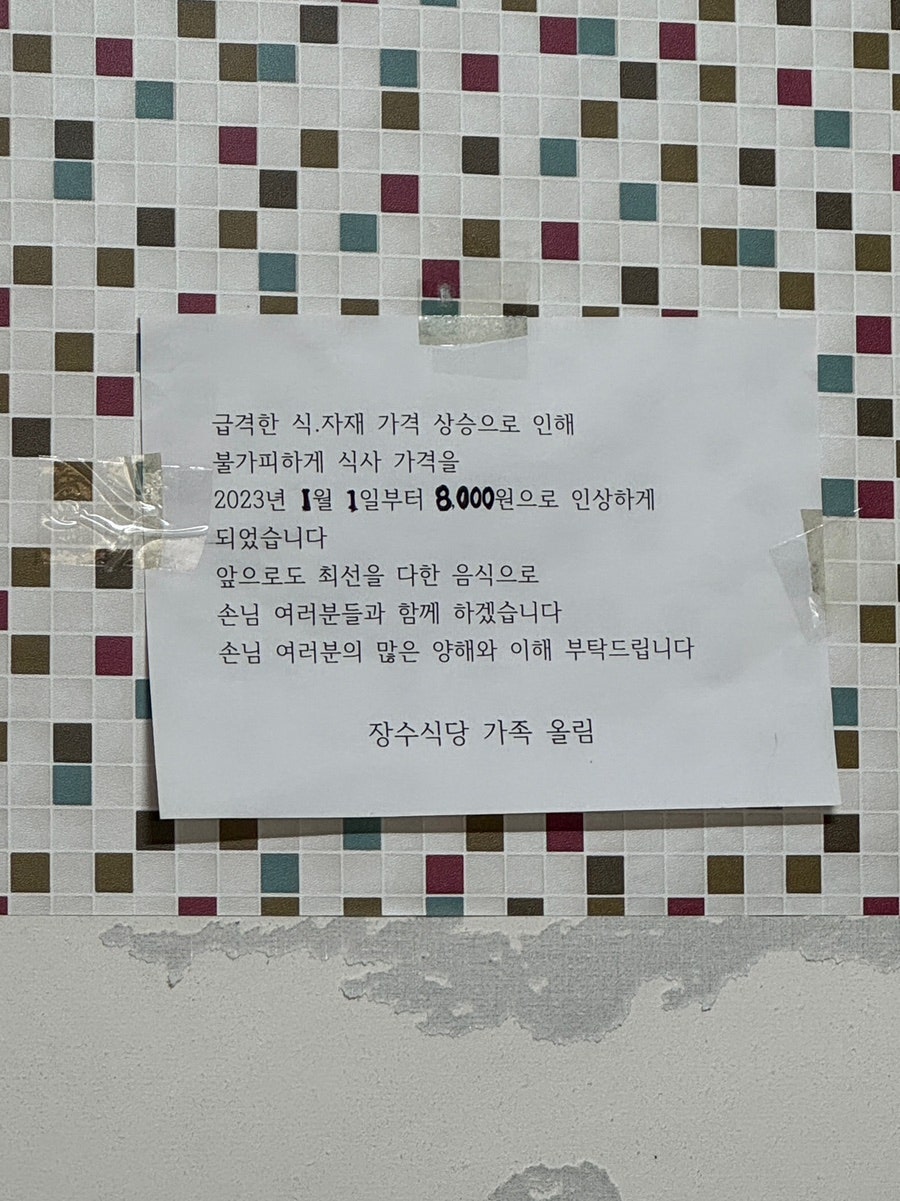 급격한 식.자재 가격 상승으로 인해
불가피하게 식사 가격을
2023년 1월 1일부터 8,000원으로 인상하게
되었습니다
앞으로도 최선을 다한 음식으로
손님 여러분들과 함께 하겠습니다
손님 여러분의 많은 양해와 이해 부탁드립니다
장수식당 가족 올림